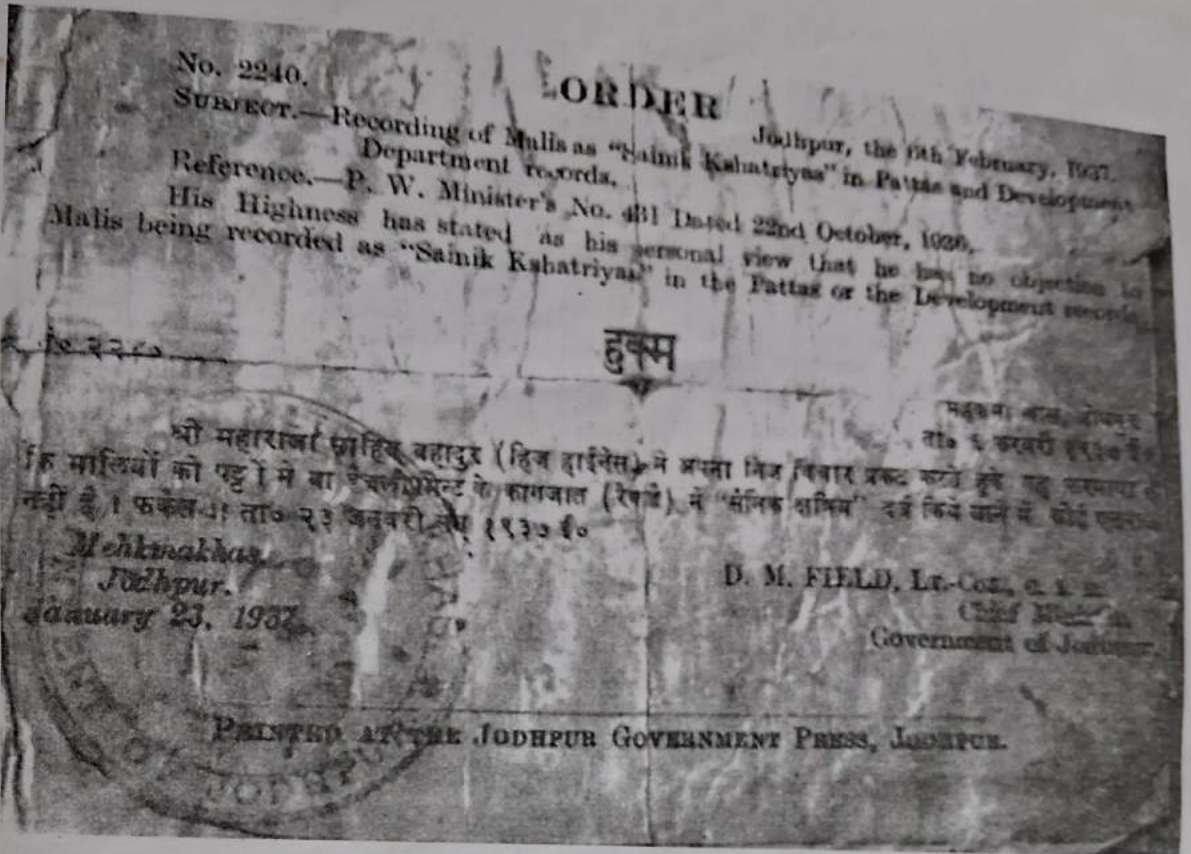 No. 2240.
ORDER
Jodhpur, the 6th February, 1937.
SUBJECT.—Recording of Malis as "Sainik Kshatriyas" in Pattas and Development
Department records.
Reference.—P. W. Minister's No. 431 Dated 22nd October, 1936.
His Highness has stated as his personal view that he has no objection to
Malis being recorded as "Sainik Kshatriyas" in the Pattas or the Development records.
२२४०
हुक्म
महकमा खास, जोधपुर
ता० ६ फरवरी १९३७ ई०
श्री महाराजा साहिब बहादुर (हिज हाईनेस) ने अपना निज विचार प्रकट करते हुवे यह फरमाया है
कि मालियों को पट्टों में वा डेवलीपमेन्ट के कागजात (रेकार्ड) में "सैनिक क्षत्रिय" दर्ज किये जाने में कोई
नहीं है। ता० २३ जनवरी सन् १९३७ ई०
Mehkmakhas,
Jodhpur.
January 23, 1937.
D. M. FIELD, LT.-COL., C. I. E.
Chief Minister,
Government of Jodhpur.
PRINTED AT THE JODHPUR GOVERNMENT PRESS, JODHPUR.
OF JODHPUR